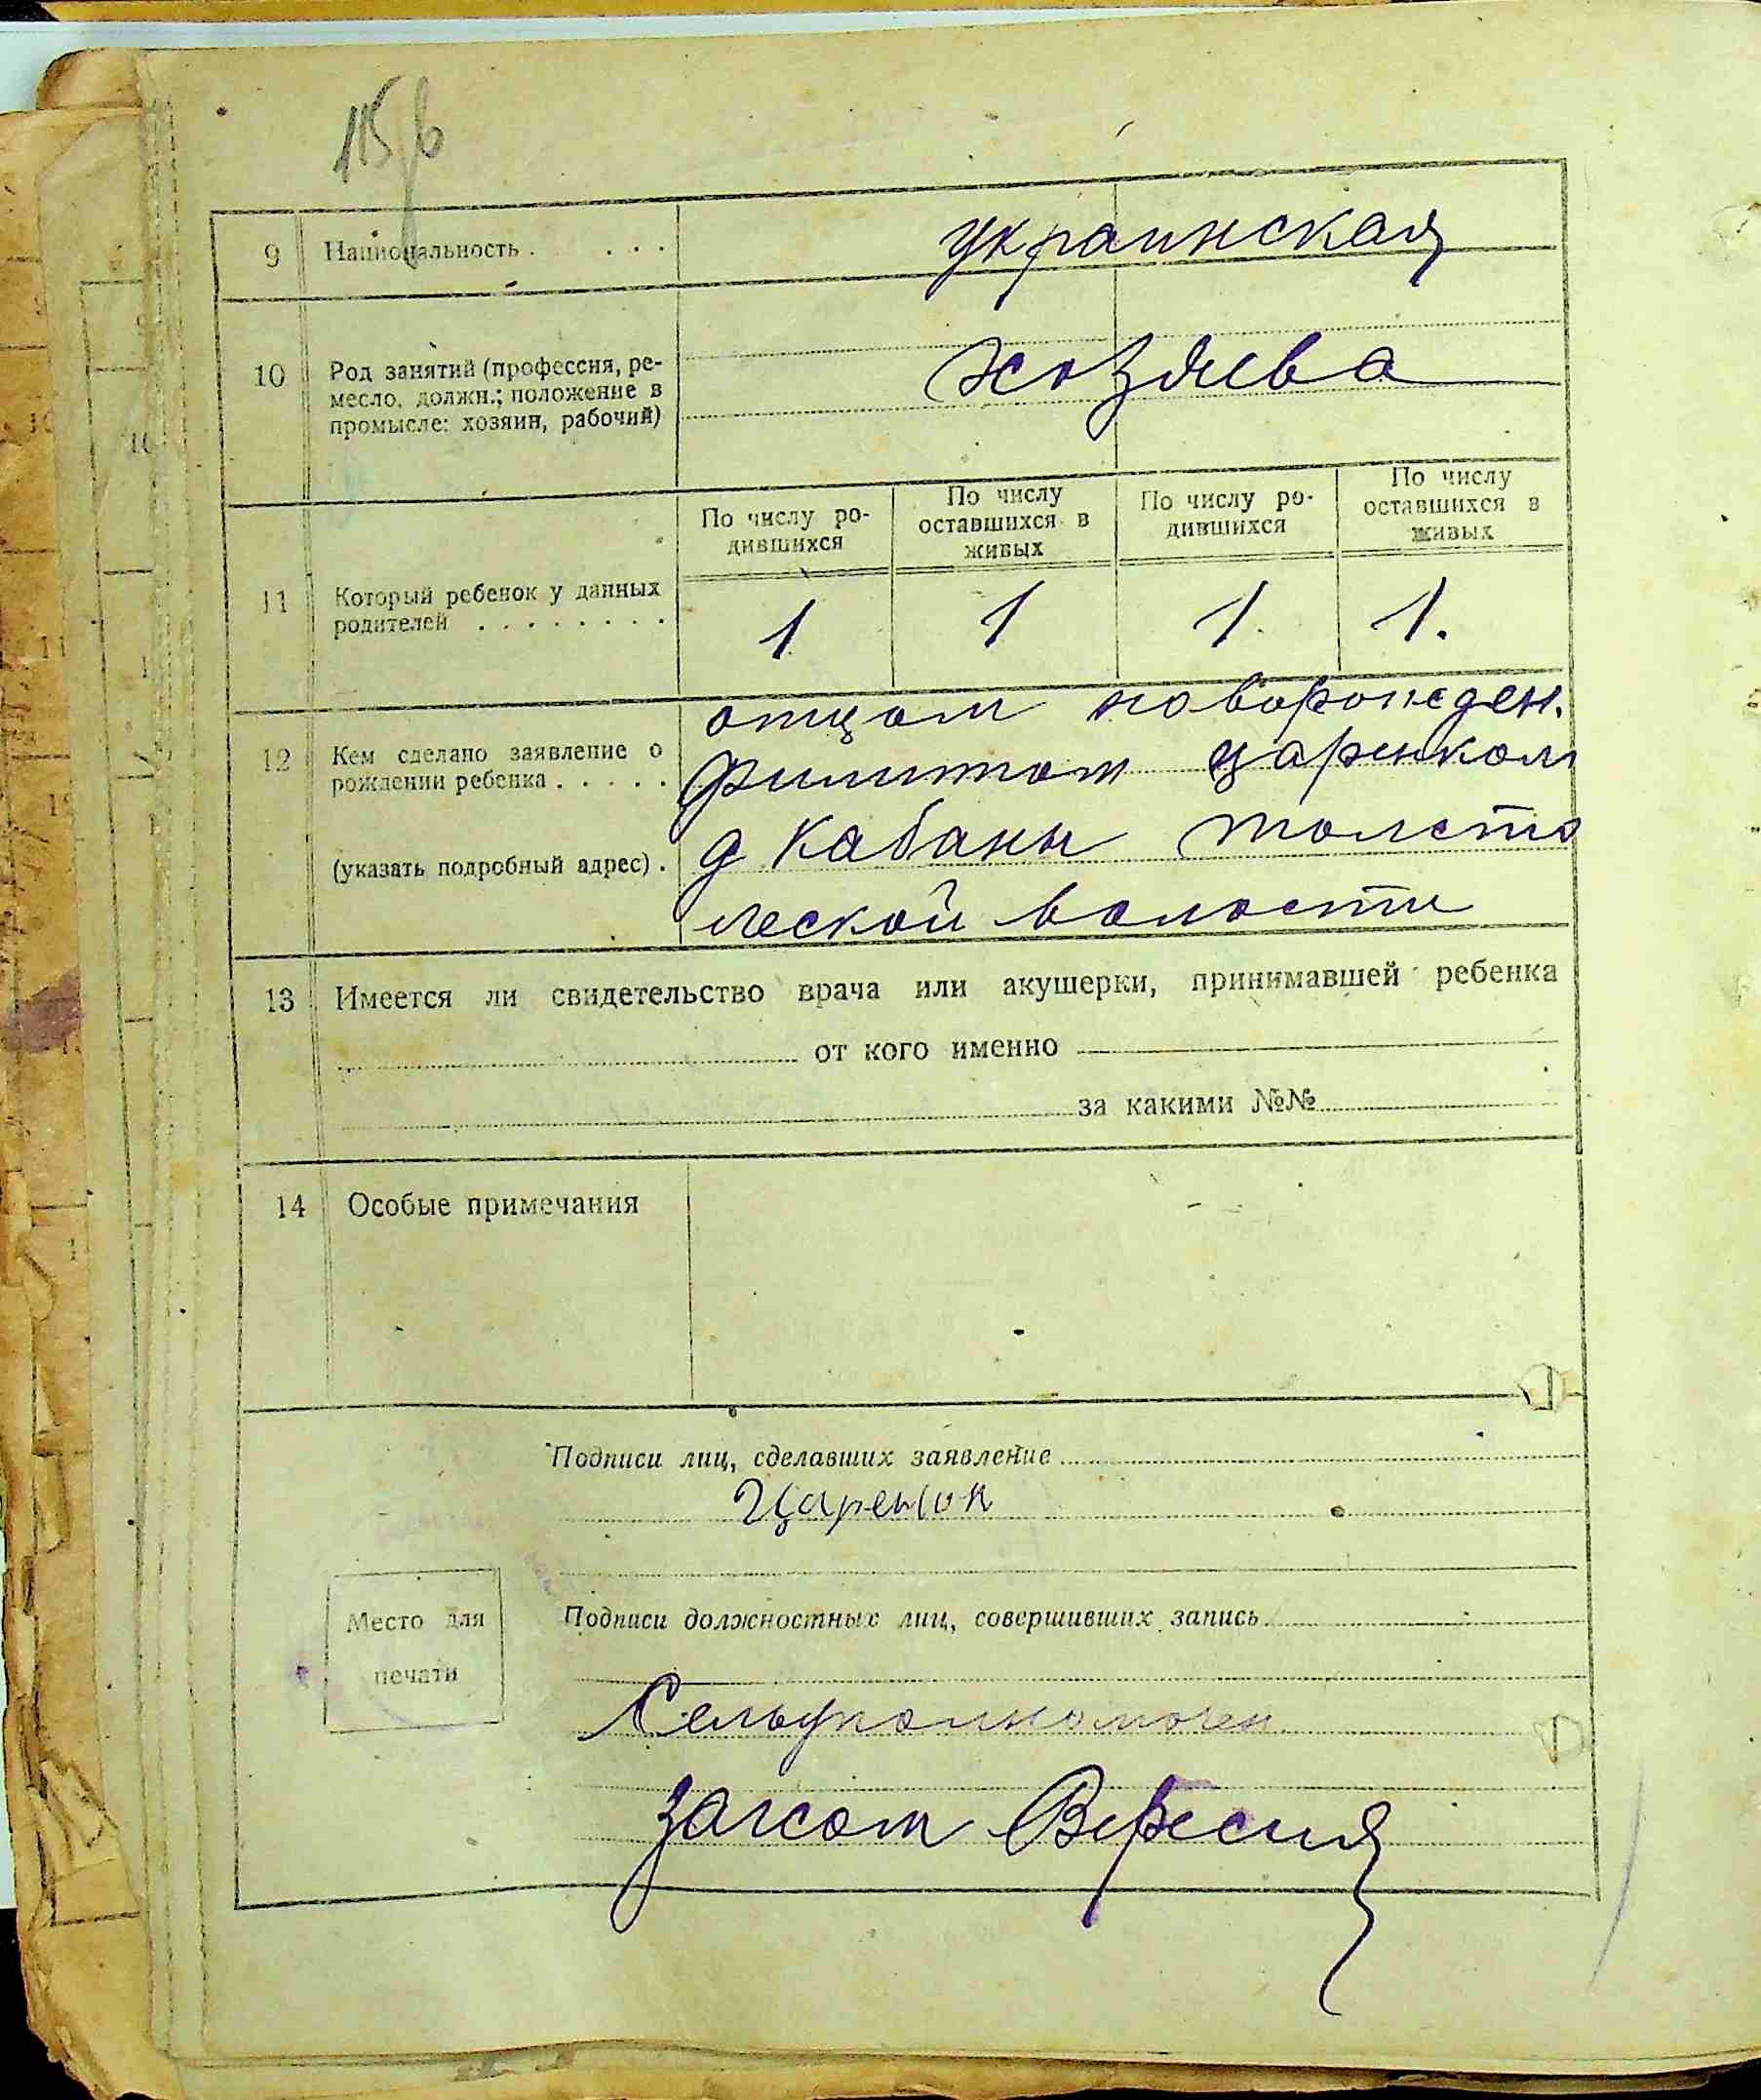 115/6
9 Национальность . . . . украинская
10 Род занятий (профессия, ре-
месло, должн.; положение в
промысле: хозяин, рабочий)
хозяева
По числу ро-
дившихся
По числу
оставшихся в
живых
По числу ро-
дившихся
По числу
оставшихся в
живых
11 Который ребенок у данных
родителей . . . . . . . .
1 1 1. 1.
12 Кем сделано заявление о
рождении ребенка . . . . .
(указать подробный адрес) .
отцом новорожден.
Филиппом Царенком
д Кабаны Толсто
леской волости
13 Имеется ли свидетельство врача или акушерки, принимавшей ребенка
от кого именно
за какими №№
14 Особые примечания
Подписи лиц, сделавших заявление
Царенок
Место для
печати
Подписи должностных лиц, совершивших запись
Сельуполномочен
загсом